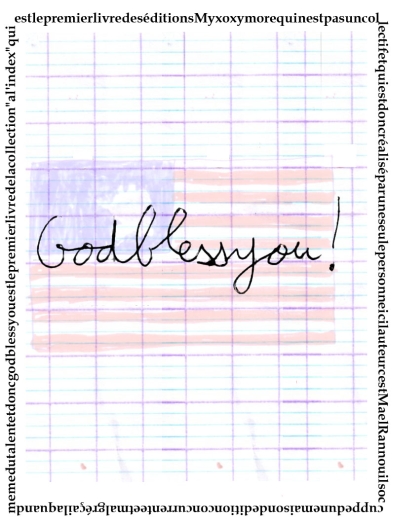 estlepremierlivredeséditionsMyxoxymorequinestpasuncol
lectifetquiestdoncréaliséparuneseulepersonneicilauteurcestMaelRannouilsoc
cuppedunemaisondéditionconcurrenteetmalgréçailaquand
memedutalentetdoncgodblessyouestlepremierlivredelacollection"al'index"qui
Godblessyou!